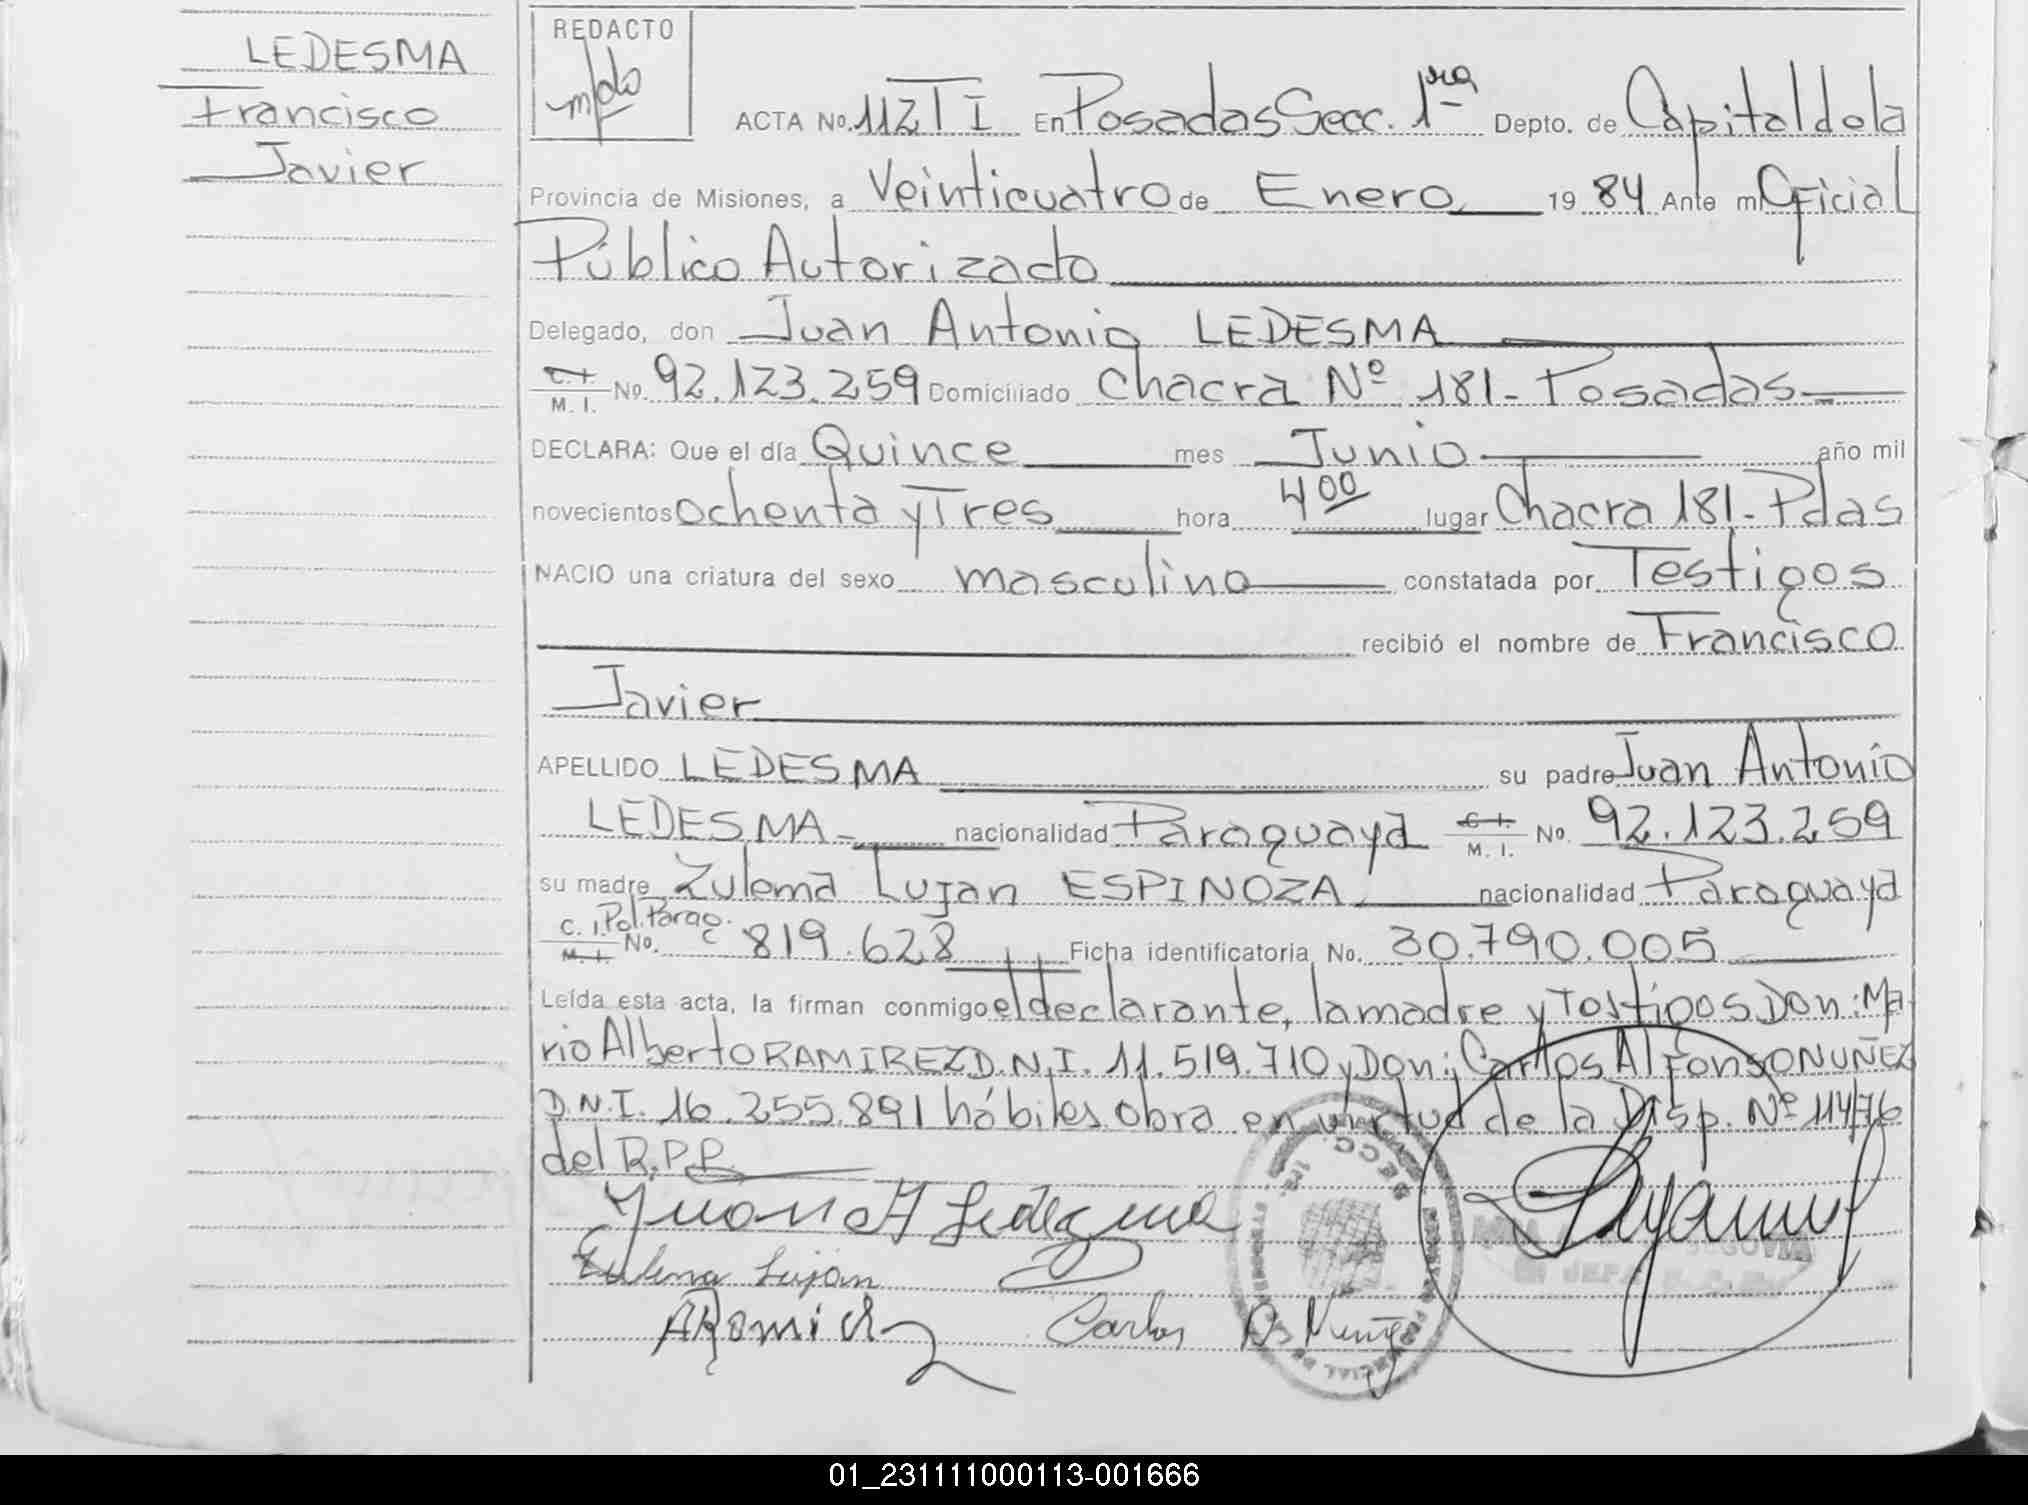 LEDESMA
Francisco
Javier
REDACTO
ACTA No. 112 T I En Posadas Secc. 1ra Depto. de Capital de la
Provincia de Misiones, a Veinticuatro de Enero 19 84 Ante mi Oficial
Público Autorizado
Delegado, don Juan Antonio LEDESMA
C. I. M. I. No. 92.123.259 Domiciliado Chacra Nº 181 - Posadas -
DECLARA: Que el día Quince mes Junio año mil
novecientos ochenta y Tres hora 4 00 lugar Chacra 181 - Pdas
NACIO una criatura del sexo masculino constatada por Testigos
recibió el nombre de Francisco
Javier
APELLIDO LEDESMA su padre Juan Antonio
LEDESMA - nacionalidad Paraguaya C. I. M. I. No. 92.123.259
su madre Zulema Lujan ESPINOZA nacionalidad Paraguaya
C. I. Pol. Parag. M. I. No. 819.628 Ficha identificatoria No. 30.790.005
Leída esta acta, la firman conmigo el declarante, la madre y Testigos Don: Ma-
rio Alberto RAMIREZ D.N.I. 11.519.710 y Don: Carlos Alfonso NUÑEZ
D.N.I. 16.255.891 hábiles. Obra en virtud de la Disp. Nº 114/76
del R.P.P.
Juan A Ledesma
Zulema Luján
Carlos A. Nuñez
SECC. 1ra.
SEGOVIA
JEFA
01_231111000113-001666